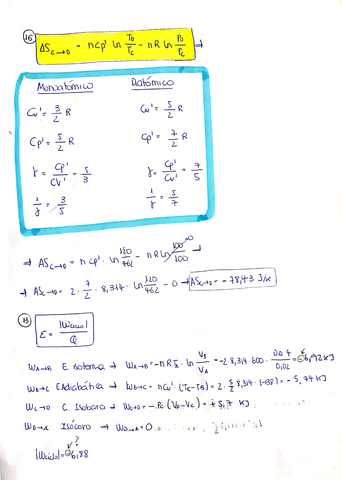 ΔS_C→D = n Cp' ln T_D/T_C - nR ln P_D/P_C →
Monoatómico Diatómico
Cv' = 3/2 R Cv' = 5/2 R
Cp' = 5/2 R Cp' = 7/2 R
γ = Cp'/Cv' = 5/3 γ = Cp'/Cv' = 7/5
1/γ = 3/5 1/γ = 5/7
→ ΔS_C→D = n Cp' · ln 120/462 - nR ln 100/100 →
→ ΔS_C→D = 2 · 7/2 · 8,314 · ln 120/462 - 0 → ΔS_C→D = -78,43 J/K
E = |W ciclo|/Q
W_A→B E isoterma → W_A→B = -nR T_B · ln V_B/V_A = -2 · 8,314 · 600 · = 6,92 KJ
W_B→C E Adiabática → W_B→C = n Cv' (T_C - T_B) = 2 · 5/2 8,314 · (-138) = -5,74 KJ
W_C→D C Isobara → W_C→D = -P_C (V_D - V_C) = +5,7 KJ
W_D→A Isócoro → W_D→A = 0
?
|W ciclo| = 6,88